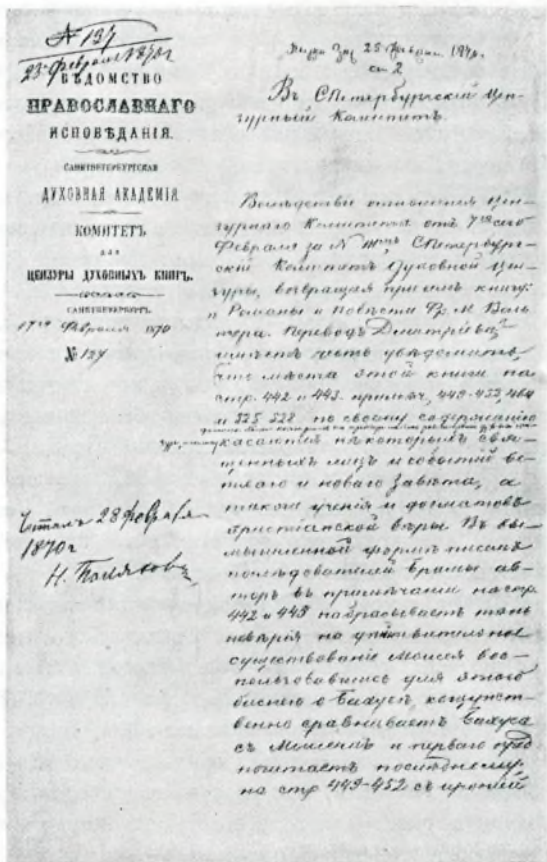 № 137
23 февраля 1870 г
ВѢДОМСТВО
ПРАВОСЛАВНАГО
ИСПОВѢДАНІЯ.
САНКТПЕТЕРБУРГСКАЯ
ДУХОВНАЯ АКАДЕМІЯ
КОМИТЕТЪ
ДЛЯ
ЦЕНЗУРЫ ДУХОВНЫХЪ КНИГЪ.
САНКТПЕТЕРБУРГЪ.
Февраля 1870
№ 127
Читалъ 28 февраля
1870 г
Н. Поляковъ
25 февраля 1870.
ст 2
Въ СПетербургскій Цен-
зурный Комитетъ.
Вслѣдствіе отношенія Цен-
зурнаго Комитета отъ 7го сего
Февраля за № СПетербург-
скій Комитетъ Духовной Цен-
зуры, возвращая при семъ книгу:
„Романы и Повѣсти Ф. М. Воль-
тера. Переводъ Дмитріева,"
имѣетъ честь увѣдомить,
что мѣста этой книги на
стр. 442 и 443. примѣч, 449-453, 464
и 525-528. по своему содержанію
касаются нѣкоторыхъ свя-
щенныхъ лицъ и событій ве-
тхаго и новаго Завѣта, а
также ученія и догматовъ
христіанской вѣры. Въ вы-
мышленной формѣ писемъ
послѣдователей Брамы ав-
торъ въ примѣчаніи на стр
442 и 443 набрасываетъ тѣнь
невѣрія на дѣйствительное
существованіе Моисея вос-
пользовавшись для этого
баснею о Бахусѣ, кощунст-
венно сравниваетъ Бахуса
съ Моисеемъ и перваго пред
почитаетъ послѣднему,
на стр 449-452 съ ироніей